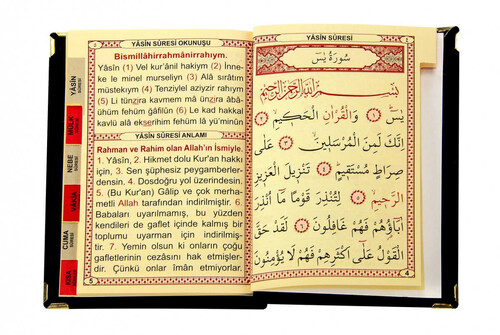 YÂSİN SÛRESİ OKUNUŞU
Bismillâhirrahmânirrahıym.
Yâsîn (1) Vel kur'ânil hakiym (2) İnne-
ke le minel murseliyn (3) Alâ sırâtim
müstekıym (4) Tenziylel aziyzir rahıym
(5) Li tünzira kavmem mâ ünzira âbâ-
ühüm fehüm gâfilûn (6) Le kad hakkal
kavlü alâ ekserihim fehüm lâ yü'minûn
YÂSİN SÛRESİ ANLAMI
Rahman ve Rahim olan Allah'ın İsmiyle.
1. Yâsin, 2. Hikmet dolu Kur'an hakkı
için, 3. Sen şüphesiz peygamberler-
densin. 4. Dosdoğru yol üzerindesin.
5. (Bu Kur'an) Gâlip ve çok merha-
metli Allah tarafından indirilmiştir. 6.
Babaları uyarılmamış, bu yüzden
kendileri de gaflet içinde kalmış bir
toplumu uyarman için indirilmiş-
tir. 7. Yemin olsun ki onların çoğu
gafletlerinin cezasını hak etmişler-
dir. Çünkü onlar iman etmiyorlar.
5
YÂSİN
SÛRESİ
MÜLK
SÛRESİ
NEBE
SÛRESİ
VÂKIA
SÛRESİ
CUMA
SÛRESİ
KISA
YÂSİN SÛRESİ
سُورَةُ يٰسٓ
بِسْمِ اللّٰهِ الرَّحْمٰنِ الرَّحِيمِ
يٰسٓ ﴿١﴾ وَالْقُرْاٰنِ الْحَكِيمِ ﴿٢﴾
اِنَّكَ لَمِنَ الْمُرْسَلِينَ ﴿٣﴾ عَلٰى
صِرَاطٍ مُسْتَقِيمٍ ﴿٤﴾ تَنْزِيلَ الْعَزِيزِ
الرَّحِيمِ ﴿٥﴾ لِتُنْذِرَ قَوْمًا مَٓا اُنْذِرَ
اٰبَٓاؤُ۬هُمْ فَهُمْ غَافِلُونَ ﴿٦﴾ لَقَدْ حَقَّ
الْقَوْلُ عَلٰٓى اَكْثَرِهِمْ فَهُمْ لَا يُؤْمِنُونَ
4